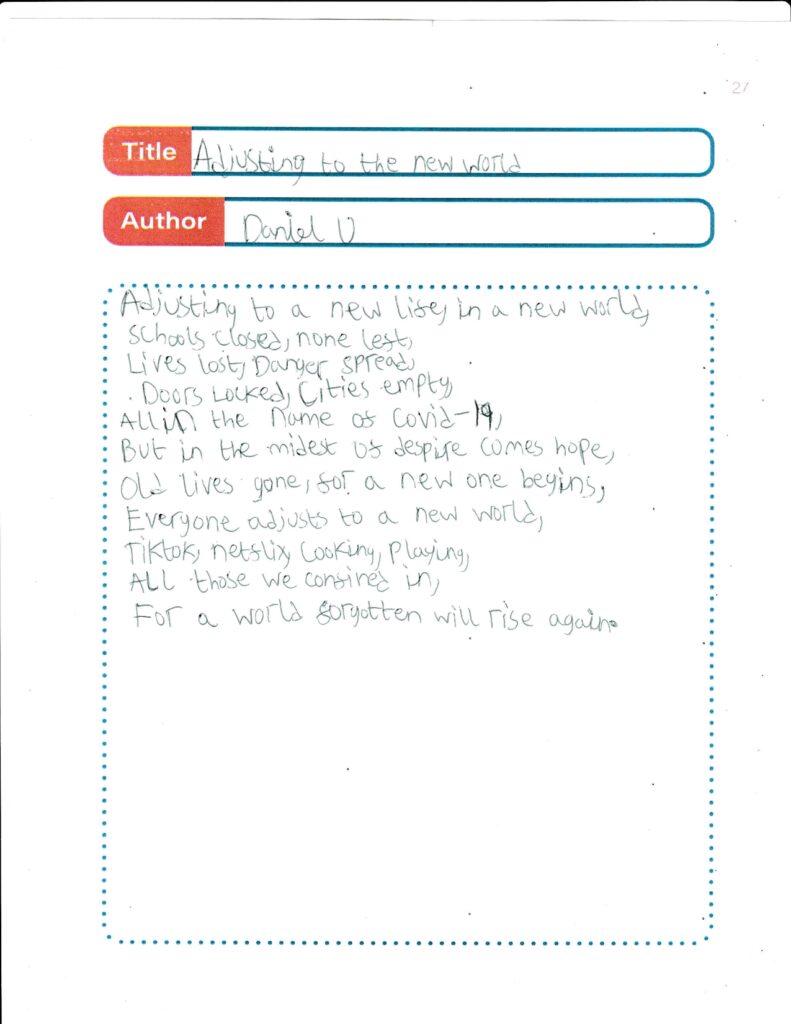 27
Title Adjusting to the new world
Author Daniel U
Adjusting to a new life, in a new world,
Schools closed, none left,
Lives lost, Danger spread,
Doors Locked, Cities empty,
All in the name of Covid-19,
But in the midest of despire comes hope,
Old lives gone, for a new one begins,
Everyone adjusts to a new world,
Tiktok, netflix, Cooking, Playing,
ALL those we confined in,
For a world forgotten will rise again.